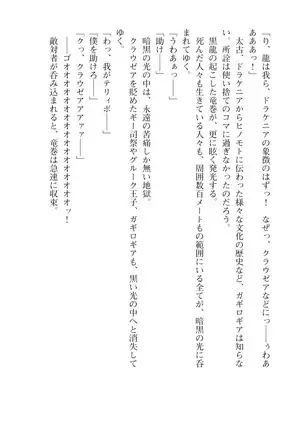 「り、龍は我ら、ドラケニアの象徴のはずっ! なぜっ、クラウゼアなどにっ――ぅわあ
ああぁっ!」
太古、ドラケニアからヒノモトに伝わった様々な文化の歴史など、ガギロギアは知らな
い。所詮は使い捨てのコマに過ぎなかったのだろう。
黒龍の起こした竜巻が、更に眩く発光する。
死んだ人々も生きている人々も、周囲数百メートルもの範囲にいる全てが、暗黒の光に呑
まれてゆく。
「うわあぁっ――」
「助け――」
暗黒の光の中は、永遠の苦痛しか無い地獄。
クラウゼアを貶めたギー司祭やグルーク王子、ガギロギアも、黒い光の中へと消失して
ゆく。
「わっ、我がテリィボ――」
「僕を助けろ――」
「クっ、クラウゼアアアァァ――」
――ゴオオオオオオオオオオオオオオオッ!
敵対者が呑み込まれると、竜巻は急速に収束。